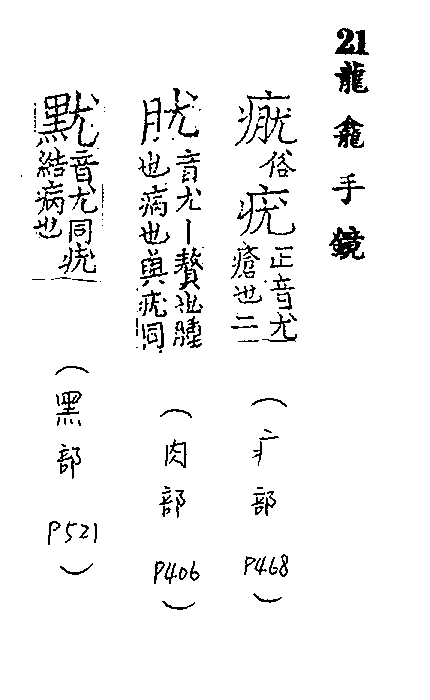 21龍龕手鏡
𤷒俗疣正音尤瘡也二
(疒部 P468)
肬音尤丨贅也腫也病也與疣同
(肉部 P406)
黕音尤同疣結病也
(黑部 P521)